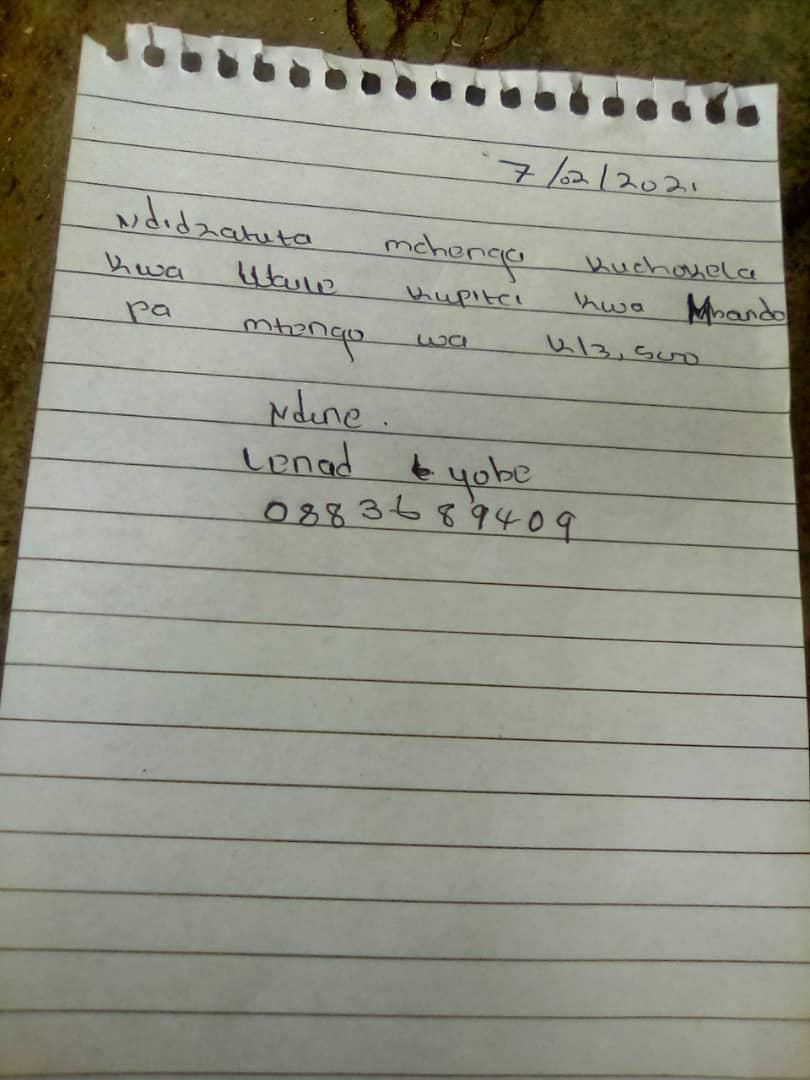 7/02/2021
Ndidzatuta mchenga kuchokela
kwa kupita kwa Mhando
pa mtengo wa K13,500
Ndine.
Lenad Kyobe
0883689409